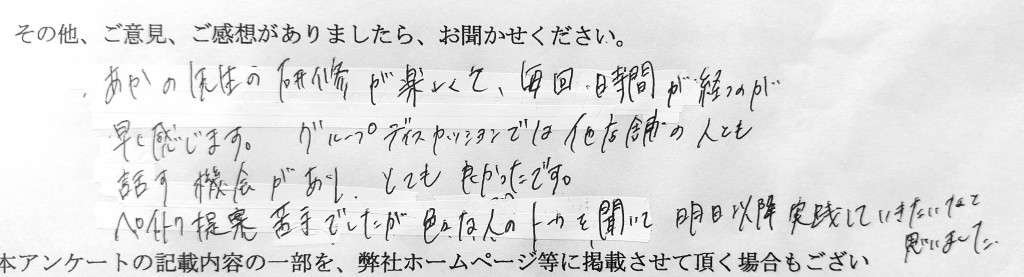 その他、ご意見、ご感想がありましたら、お聞かせください。
あかの先生の研修が楽しくて、毎回時間が経つのが
早く感じます。グループディスカッションでは他店舗の人とも
話す機会があり、とても良かったです。
提案苦手でしたが色々な人のトークを聞いて明日以降実践していきたいなと
思いました。
本アンケートの記載内容の一部を、弊社ホームページ等に掲載させて頂く場合もござい